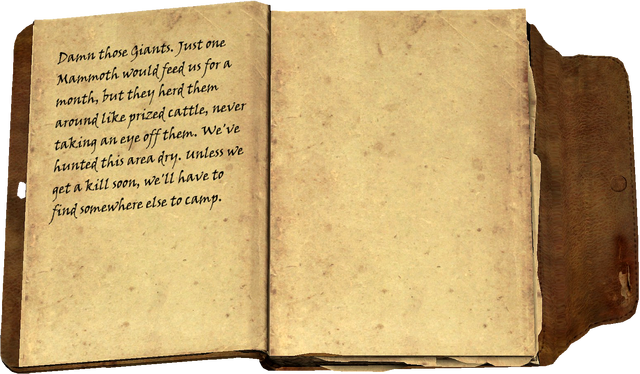 Damn those Giants. Just one
Mammoth would feed us for a
month, but they herd them
around like prized cattle, never
taking an eye off them. We've
hunted this area dry. Unless we
get a kill soon, we'll have to
find somewhere else to camp.